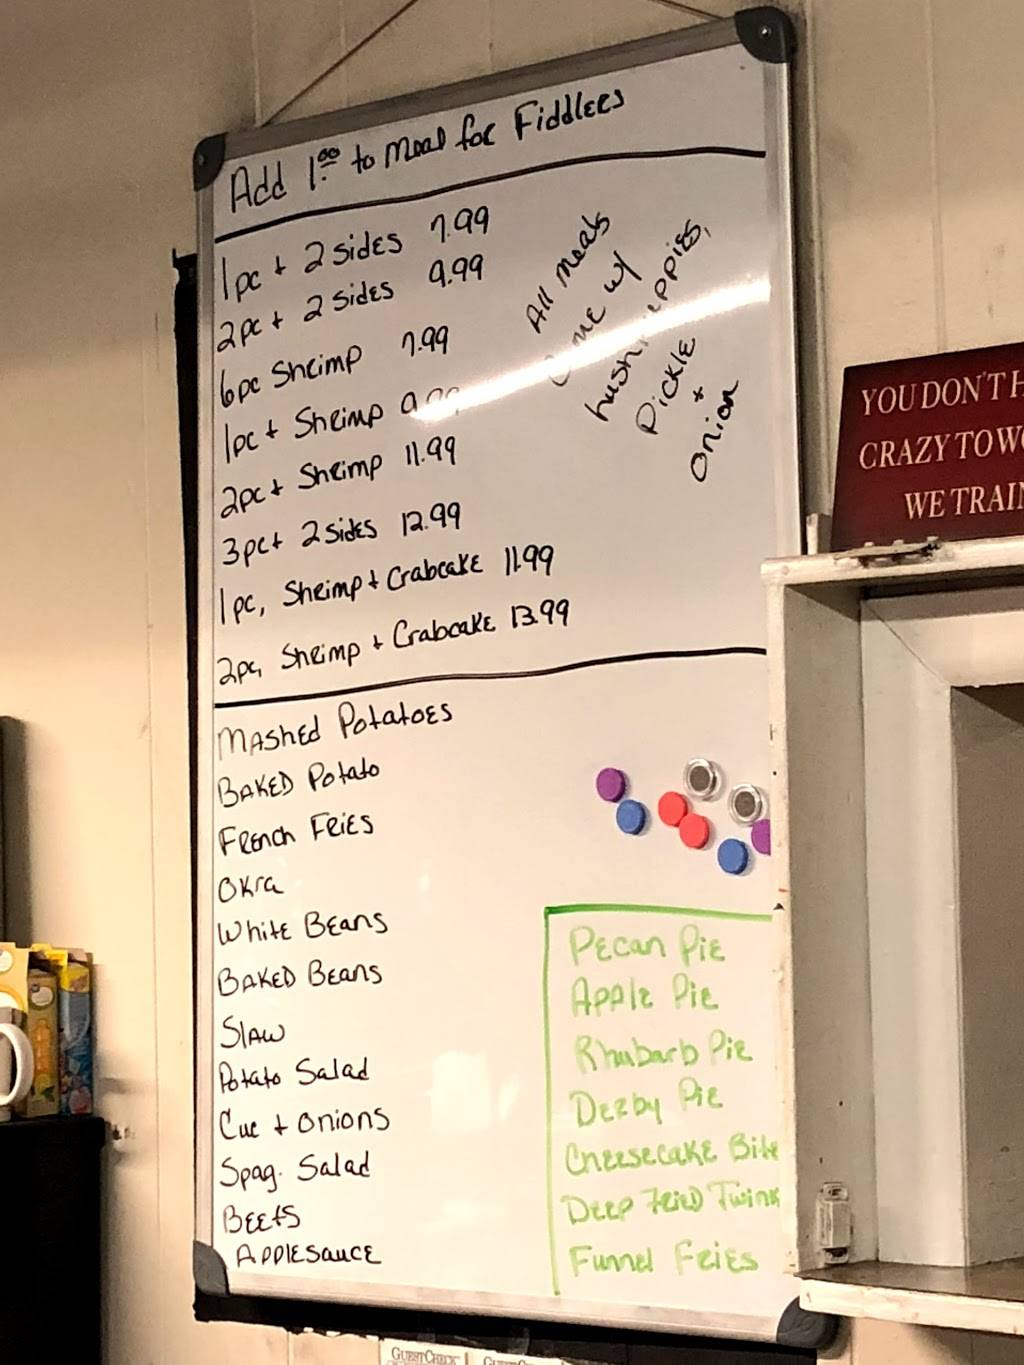 Add 1.00 to Meal for Fiddlers
1pc + 2 sides 7.99
2pc + 2 sides 9.99
6pc Shrimp 7.99
1pc + Shrimp 9.99
2pc + Shrimp 11.99
3pc + 2 sides 12.99
1pc, Shrimp + Crabcake 11.99
2pc, Shrimp + Crabcake 13.99
All meals
come w/
hushpuppies,
Pickle
+
Onion
Mashed Potatoes
Baked Potato
French Fries
Okra
White Beans
Baked Beans
Slaw
Potato Salad
Cuc + Onions
Spag. Salad
Beets
Applesauce
Pecan Pie
Apple Pie
Rhubarb Pie
Derby Pie
Cheesecake Bite
Deep Fried Twink
Funnel Fries
YOU DON'T H
CRAZY TO WO
WE TRAIN
GUESTCHECK
GUESTCHECK